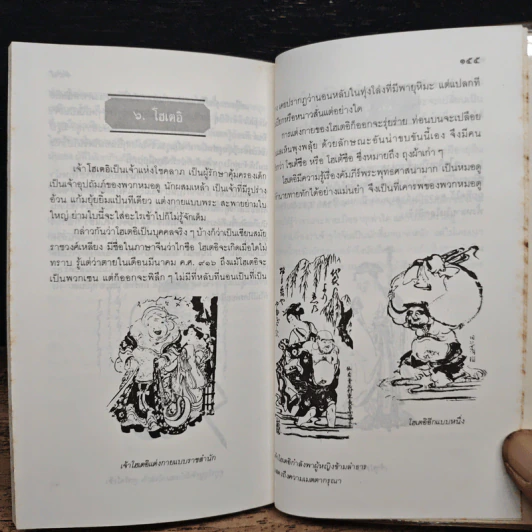 ๖. โฮเตอิ
เจ้าโฮเตอิเป็นเจ้าแห่งโชคลาภ เป็นผู้รักษาคุ้มครองเด็ก
เป็นเจ้าอุปถัมภ์ของพวกหมอดู นักผสมเหล้า เป็นเจ้าที่มีรูปร่าง
อ้วน แก้มยุ้ยยิ้มแป้นทีเดียว แต่งกายแบบพระ สะพายย่ามใบ
ใหญ่ ย่ามใบนี้จะใส่อะไรเข้าไปก็ไม่รู้จักเต็ม
กล่าวกันว่าโฮเตอิเป็นบุคคลจริง ๆ บ้างก็ว่าเป็นเซียนสมัย
ราชวงศ์เหลียง มีชื่อในภาษาจีนว่ากีชอ โฮเตอิจะเกิดเมื่อใดไม่
ทราบ รู้แต่ว่าตายในเดือนมีนาคม ค.ศ. ๙๑๖ ถึงแม้โฮเตอิจะ
เป็นพวกเซน แต่ก็ออกจะพิลึก ๆ ไม่มีที่หลับที่นอนเป็นที่เป็น
เจ้าโฮเตอิแต่งกายแบบราชสำนัก
๑๔๕
เคยปรากฏว่านอนหลับในทุ่งโล่งที่มีพายุหิมะ แต่แปลกที่
หรือหนาวสั่นแต่อย่างใด
การแต่งกายของโฮเตอิก็ออกจะรุ่ยร่าย ท่อนบนจะเปลือย
เห็นพุงพลุ้ย ด้วยลักษณะอันน่าขบขันนี้เอง จึงมีคน
ว่า โฮเต้ซือ หรือ โฮเต้ซือ ซึ่งหมายถึง ถุงผ้าเก่า ๆ
โฮเตอิมีความรู้เรื่องคัมภีร์พระพุทธศาสนามาก เป็นหมอดู
ทำนายทายทักได้อย่างแม่นยำ จึงเป็นที่เคารพของพวกหมอดู
โฮเตอิอีกแบบหนึ่ง
โฮเตอิกำลังพาผู้หญิงข้ามลำธาร
ถึงความเมตตากรุณา